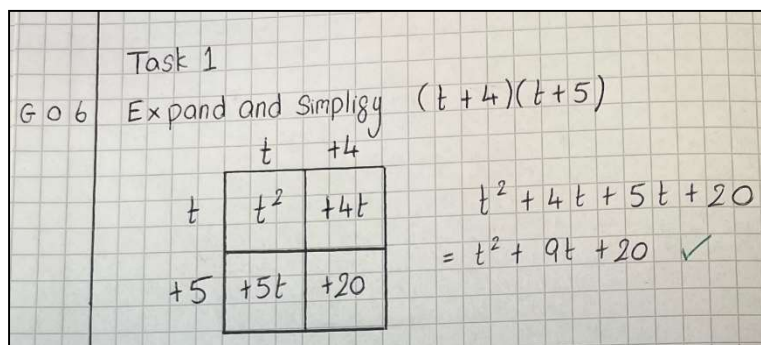 Task 1
G06 Expand and Simpligy (t+4)(t+5)
t +4
t t² +4t
+5 +5t +20
t² + 4t + 5t + 20
= t² + 9t + 20 ✓